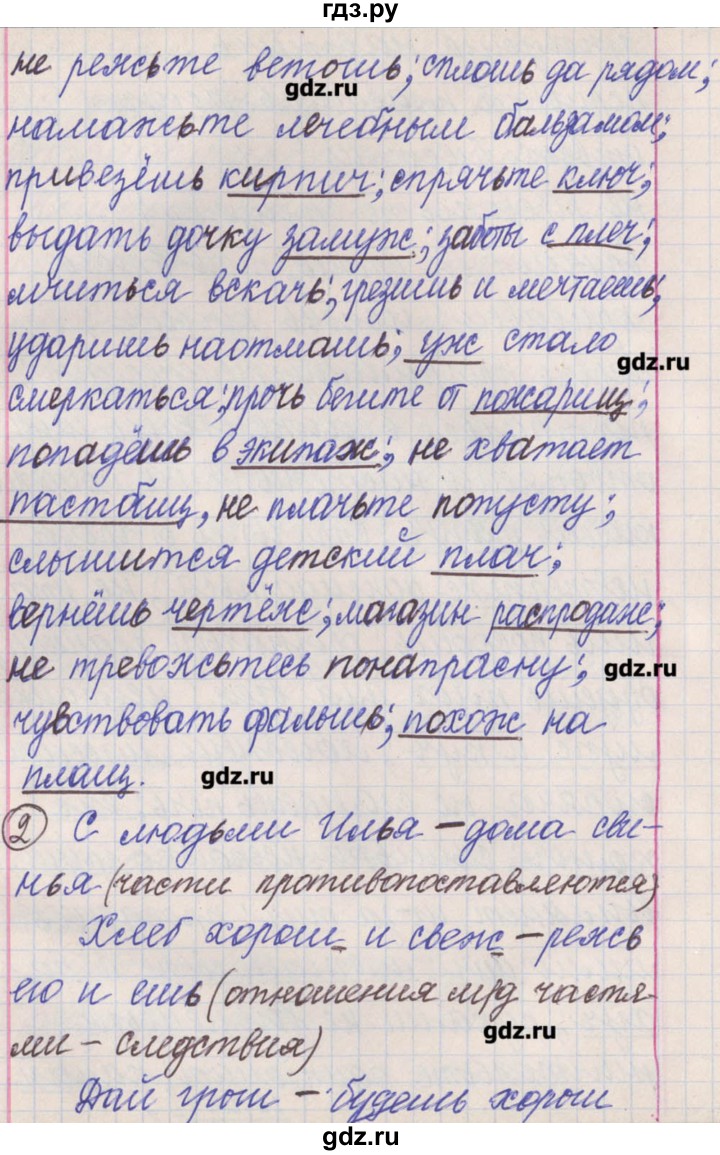 гдз.ру
не режьте ветошь; сплошь да рядом;
gdz.ru
намажьте лечебным бальзамом;
привезёшь кирпич; спрячьте ключ;
выдать дочку замуж; заботы с плеч;
мчиться вскачь; грезишь и мечтаешь;
ударишь наотмашь; уж стало
gdz.ru
смеркаться; прочь бегите от пожарищ;
попадёшь в экипаж; не хватает
пастбищ, не плачьте попусту;
слышится детский плач;
вернёшь чертёж; магазин распродаж;
не тревожьтесь понапрасну;
gdz.ru
чувствовать фальшь; похож на
плащ.
gdz.ru
2 С людьми Илья – дома сви-
нья (части противопоставляются)
Хлеб хорош и свеж – режь
его и ешь (отношения м/д частя-
ми – следствия)
gdz.ru
Дай грош – будешь хорош
gdz.ru